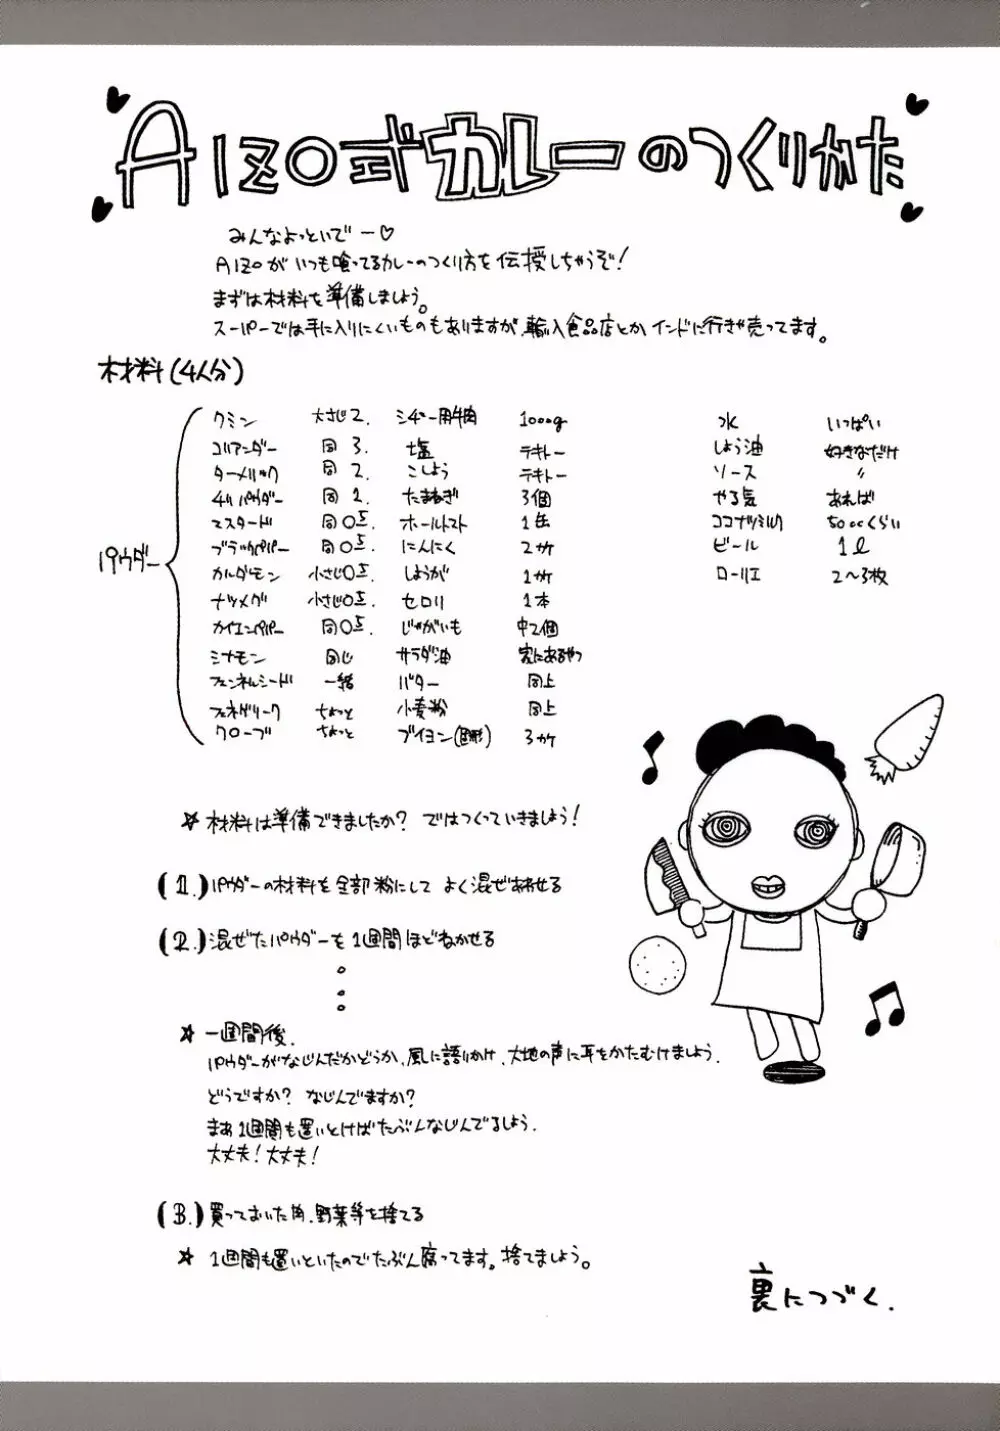 AIZO式カレーのつくりかた
みんなよっといでー♡
AIZOがいつも喰ってるカレーのつくり方を伝授しちゃうぞ!
まずは材料を準備しましょう。
スーパーでは手に入りにくいものもありますが、輸入食品店とかインドに行きゃ売ってます。
材料(4人分)
パウダー
クミン 大さじ2.
コリアンダー 同 3.
ターメリック 同 2.
チリパウダー 同 1.
マスタード 同 0.5.
ブラックペパー 同 0.5.
カルダモン 小さじ0.5.
ナツメグ 小さじ0.5.
カイエンペパー 同 0.5.
シナモン 同じ
フェンネルシード 一緒
フェネグリーク ちょっと
クローブ ちょっと
シチュー用牛肉 1000g
塩 テキトー
こしょう テキトー
たまねぎ 3個
ホールトマト 1缶
にんにく 2カケ
しょうが 1カケ
セロリ 1本
じゃがいも 中2個
サラダ油 家にあるやつ
バター 同上
小麦粉 同上
ブイヨン(固形) 3カケ
水 いっぱい
しょう油 好きなだけ
ソース 〃
やる気 あれば
ココナツミルク 500ccくらい
ビール 1ℓ
ローリエ 2〜3枚
☆ 材料は準備できましたか? ではつくっていきましょう!
(1.)パウダーの材料を全部粉にして よく混ぜあわせる
(2.)混ぜたパウダーを1週間ほどねかせる
☆ 一週間後、
パウダーがなじんだかどうか、風に語りかけ、大地の声に耳をかたむけましょう.
どうですか? なじんでますか?
まぁ1週間も置いとけばたぶんなじんでるでしょう.
大丈夫! 大丈夫!
(3.)買っておいた肉、野菜等を捨てる
☆ 1週間も置いといたのでたぶん腐ってます。捨てましょう。
裏につづく.